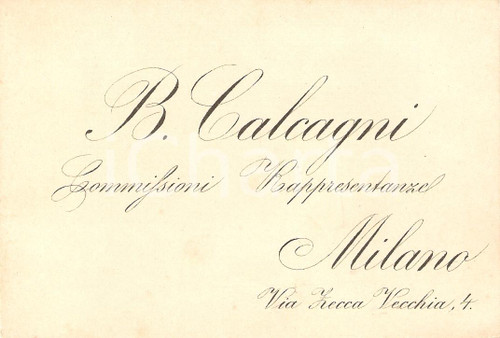 B. Calcagni
Commissioni Rappresentanze
Milano
Via Zecca Vecchia, 4.